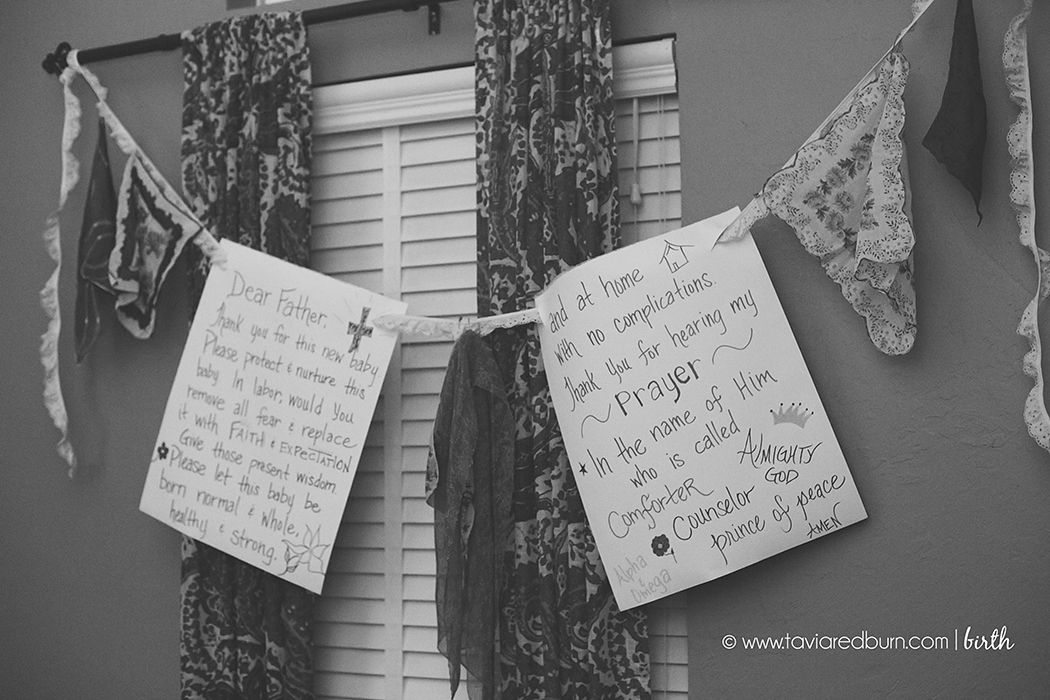 Dear Father,
Thank you for this new baby
Please protect & nurture this
baby. In labor, would you
remove all fear & replace
it with FAITH & EXPECTATION
Give those present wisdom.
Please let this baby be
born normal & whole,
healthy & strong.
and at home
with no complications.
Thank you for hearing my
Prayer
In the name of Him
who is called
ALMIGHTY
GOD
ComforteR
Counselor
prince of peace
AMEN
Alpha
&
Omega
© www.taviaredburn.com | birth